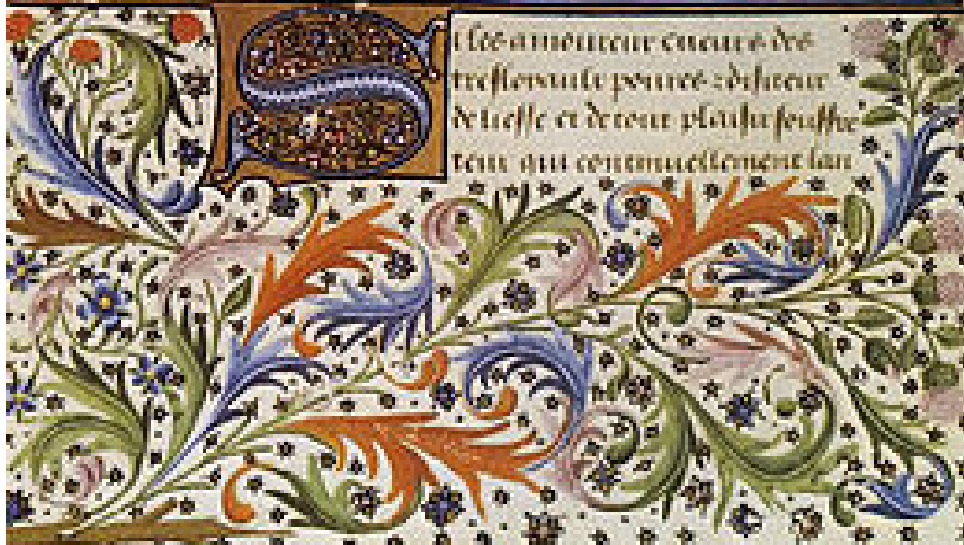 S Iles amoureux cueurs des
tresloyaulx poures
de liesse et de tout plaisir souffre
teux qui continuellement lan